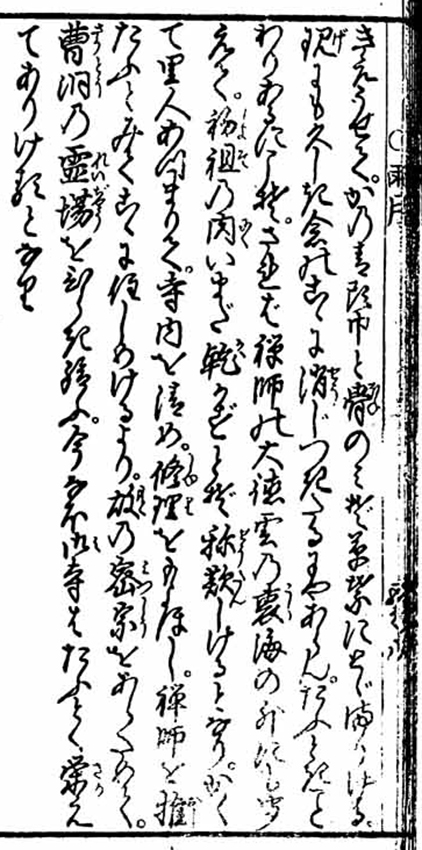 ○雨月
きえうせて。かの青頭巾と骨のみぞ草葉にとゞまりける。
現にも久しき念のこゝに消じつきたるにやあらん。たふときこと
わりあるにこそ。されば禅師の大徳雲の裏海の外にも聞
えて。初祖の肉いまだ乾かずとぞ称歎しけるとなり。かく
て里人あつまりて。寺内を清め。修理をもよほし。禅師を推
たふとみてこゝに住しめけるより。故の密宗をあらためて。
曹洞の霊場をひらき給ふ。今なほ御寺はたふとく栄え
てありけるとなり